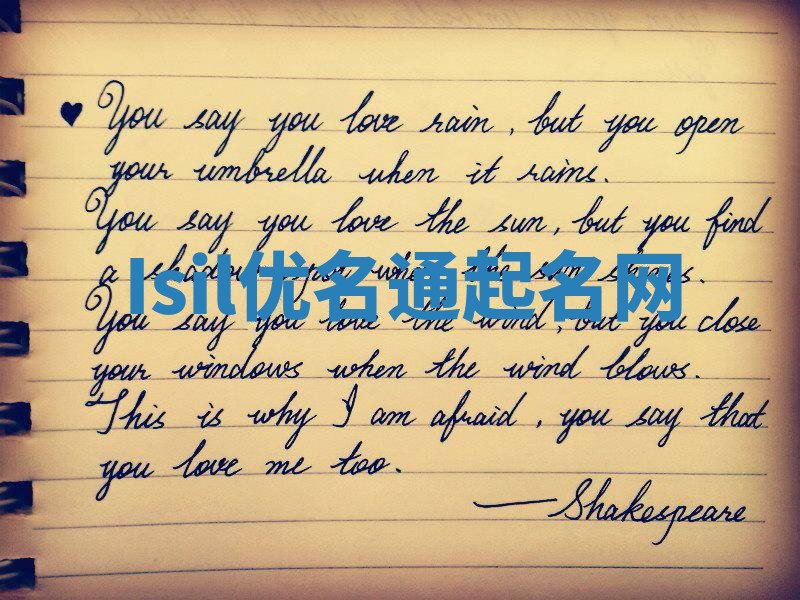 ♥ You say you love rain, but you open
your umbrella when it rains.
You say you love the sun, but you find
a shadow spot when the sun shines.
Isil优名通起名网
You say you love the wind, but you close
your windows when the wind blows.
This is why I am afraid, you say that
you love me too.
—Shakespeare